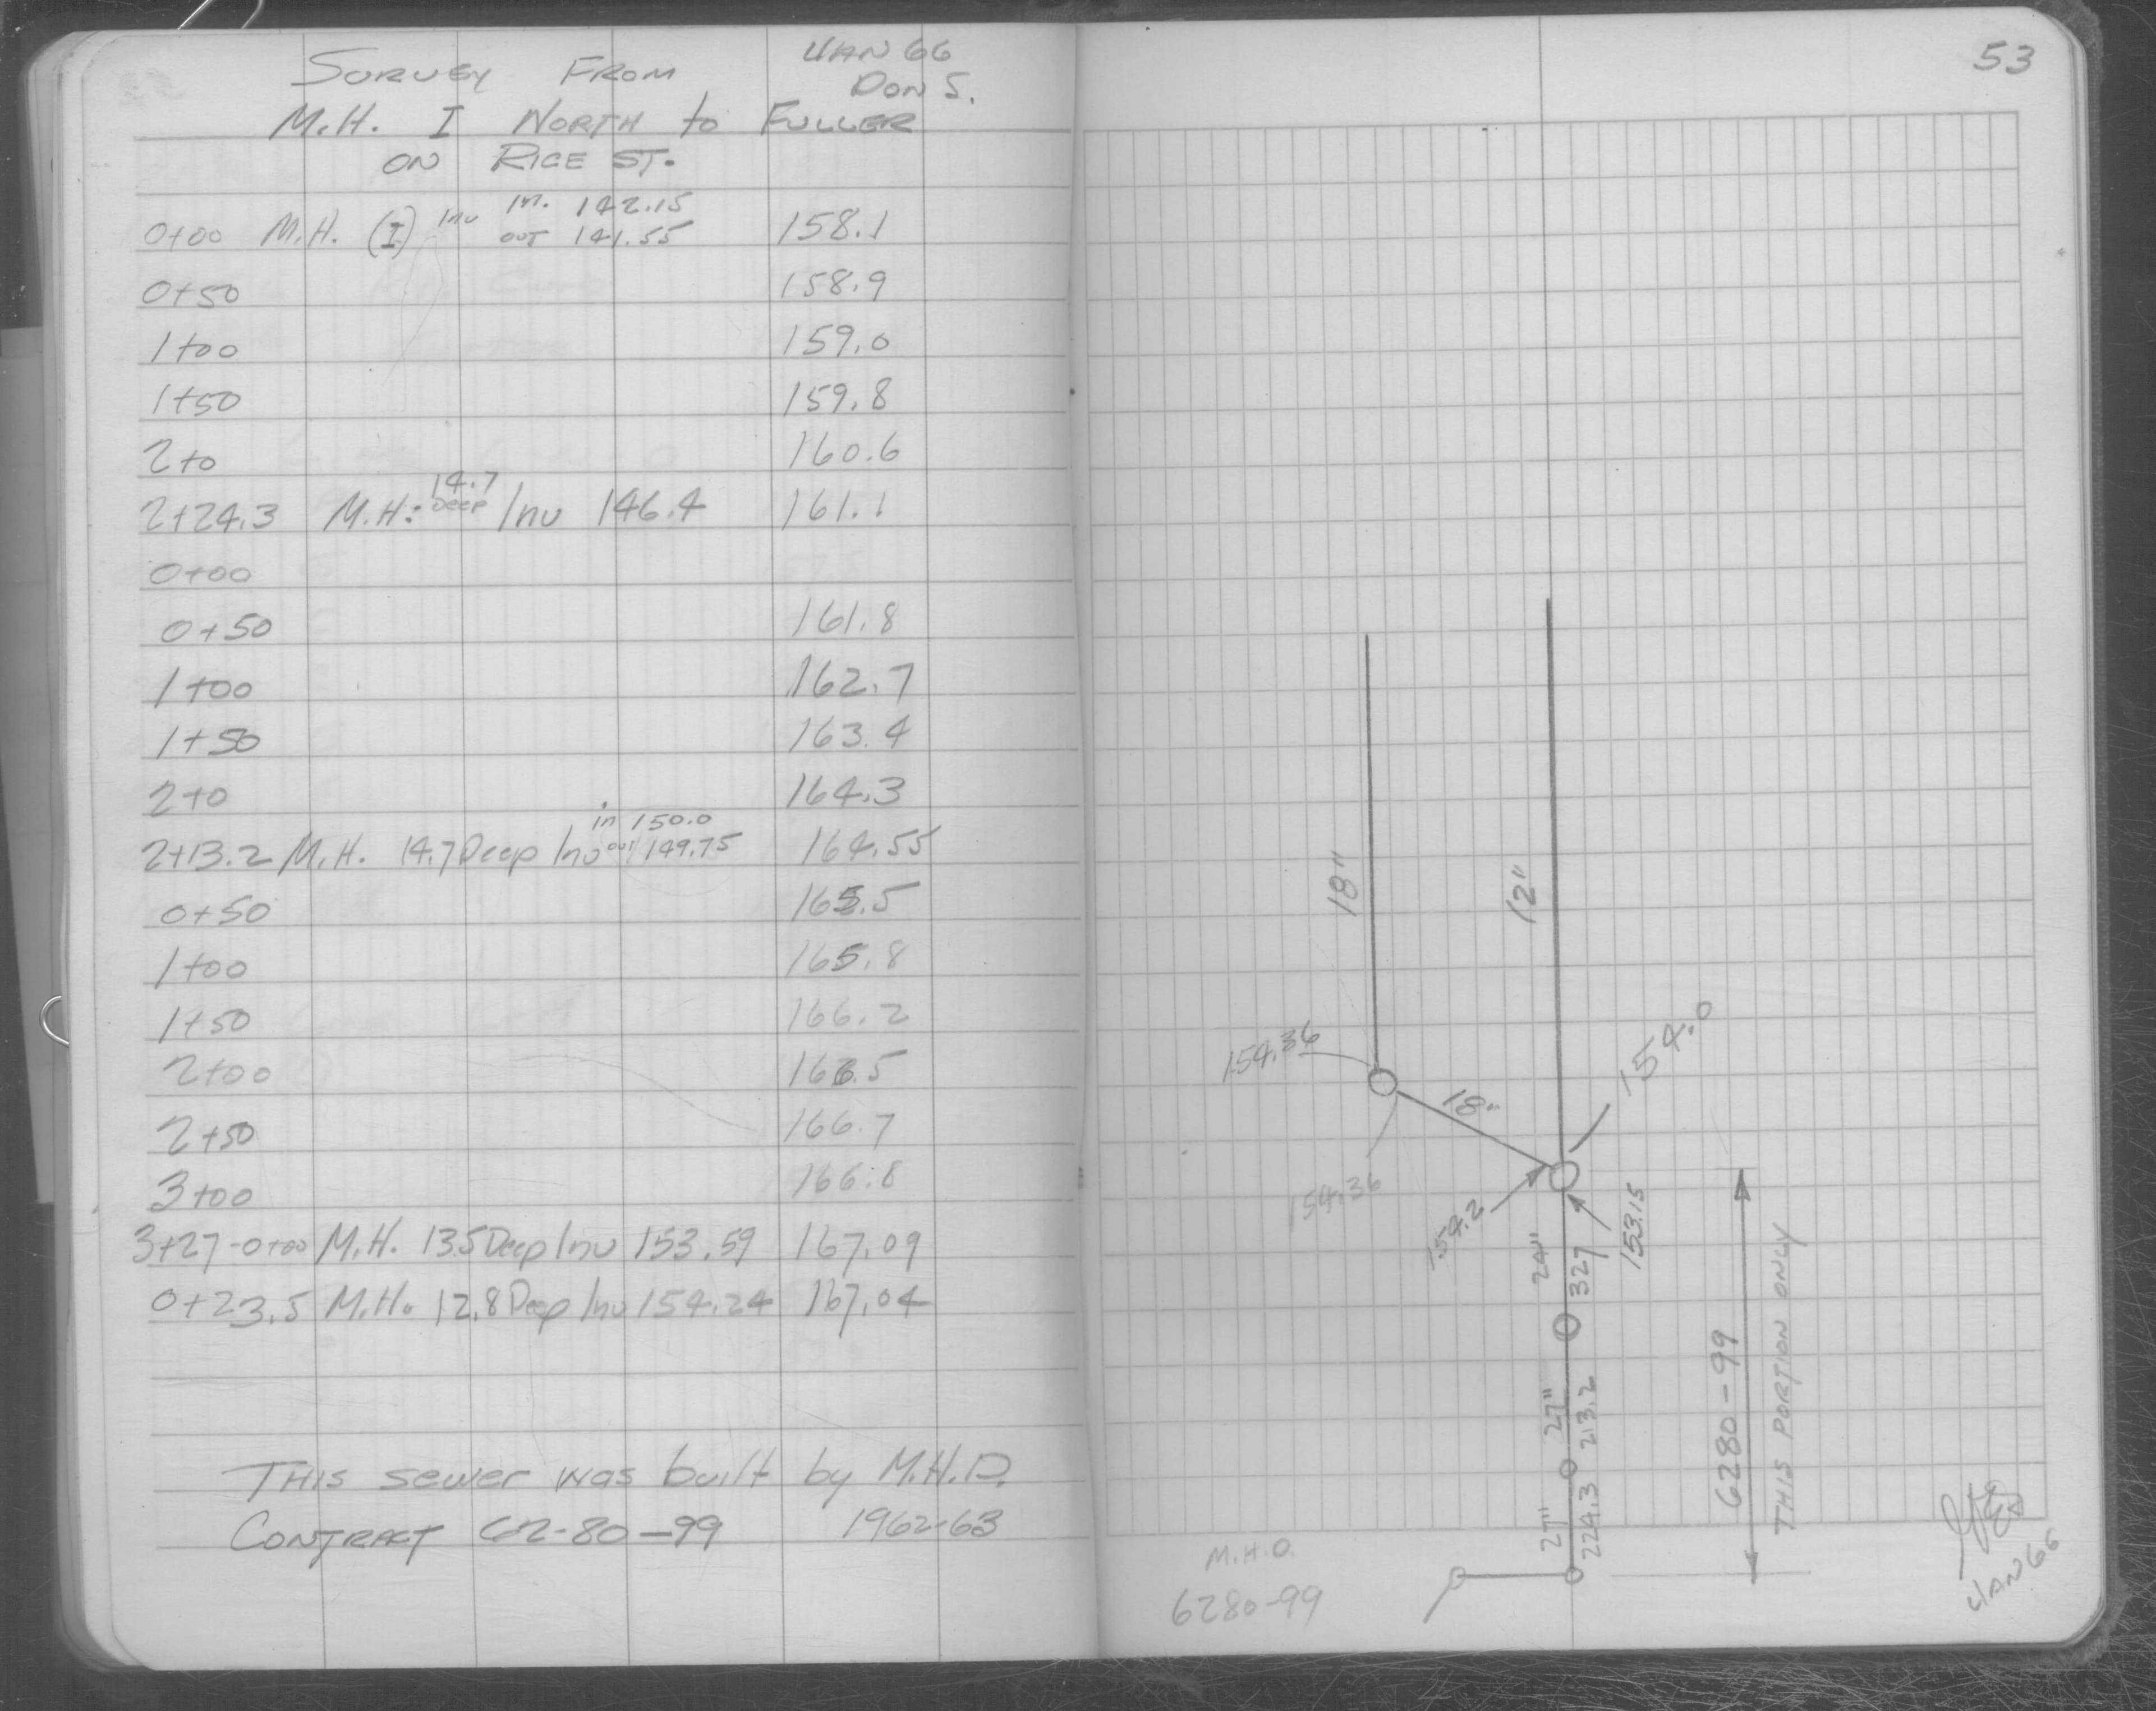 SURVEY FROM JAN 66
DON S.
M.H. I NORTH to FULLER
ON RICE ST.
0+00 M.H. (I) Inv In. 142.15 158.1
out 141.55
0+50 158.9
1+00 159.0
1+50 159.8
2+0 160.6
2+24.3 M.H: 14.7 Deep Inv 146.4 161.1
0+00
0+50 161.8
1+00 162.7
1+50 163.4
2+0 164.3
in 150.0
2+13.2 M.H. 14.7 Deep Inv out 149.75 164.55
0+50 165.5
1+00 165.8
1+50 166.2
2+00 166.5
2+50 166.7
3+00 166.8
3+27-0+00 M.H. 13.5 Deep Inv 153.59 167.09
0+23.5 M.H. 12.8 Deep Inv 154.24 167.04
THIS sewer was built by M.H.D.
CONTRACT 62-80-99 1962-63
53
18"
12"
154.36
154.0
18"
154.36
154.2
153.15
24"
327
27"
213.2
27"
224.3
6280-99
THIS PORTION ONLY
M.H.D.
6280-99
JAN 66